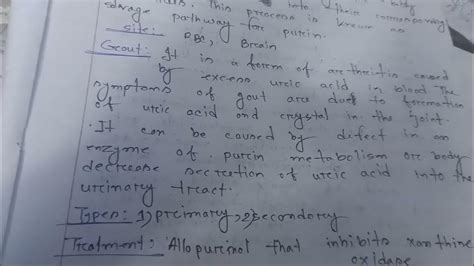 This process is known as
salvage pathway for purin.
Site: RBC, Brain
Gout: It is a form of arthritis caused
by excess uric acid in blood The
symptoms of gout are due to formation
of uric acid and crystal in the joint.
. It can be caused by defect in an
enzyme of purin metabolism or body
decrease secretion of uric acid into the
urcinary tract.
Types: 1) primary, 2) secondory
Treatment: Allopurinol that inhibits xanthine
oxidase